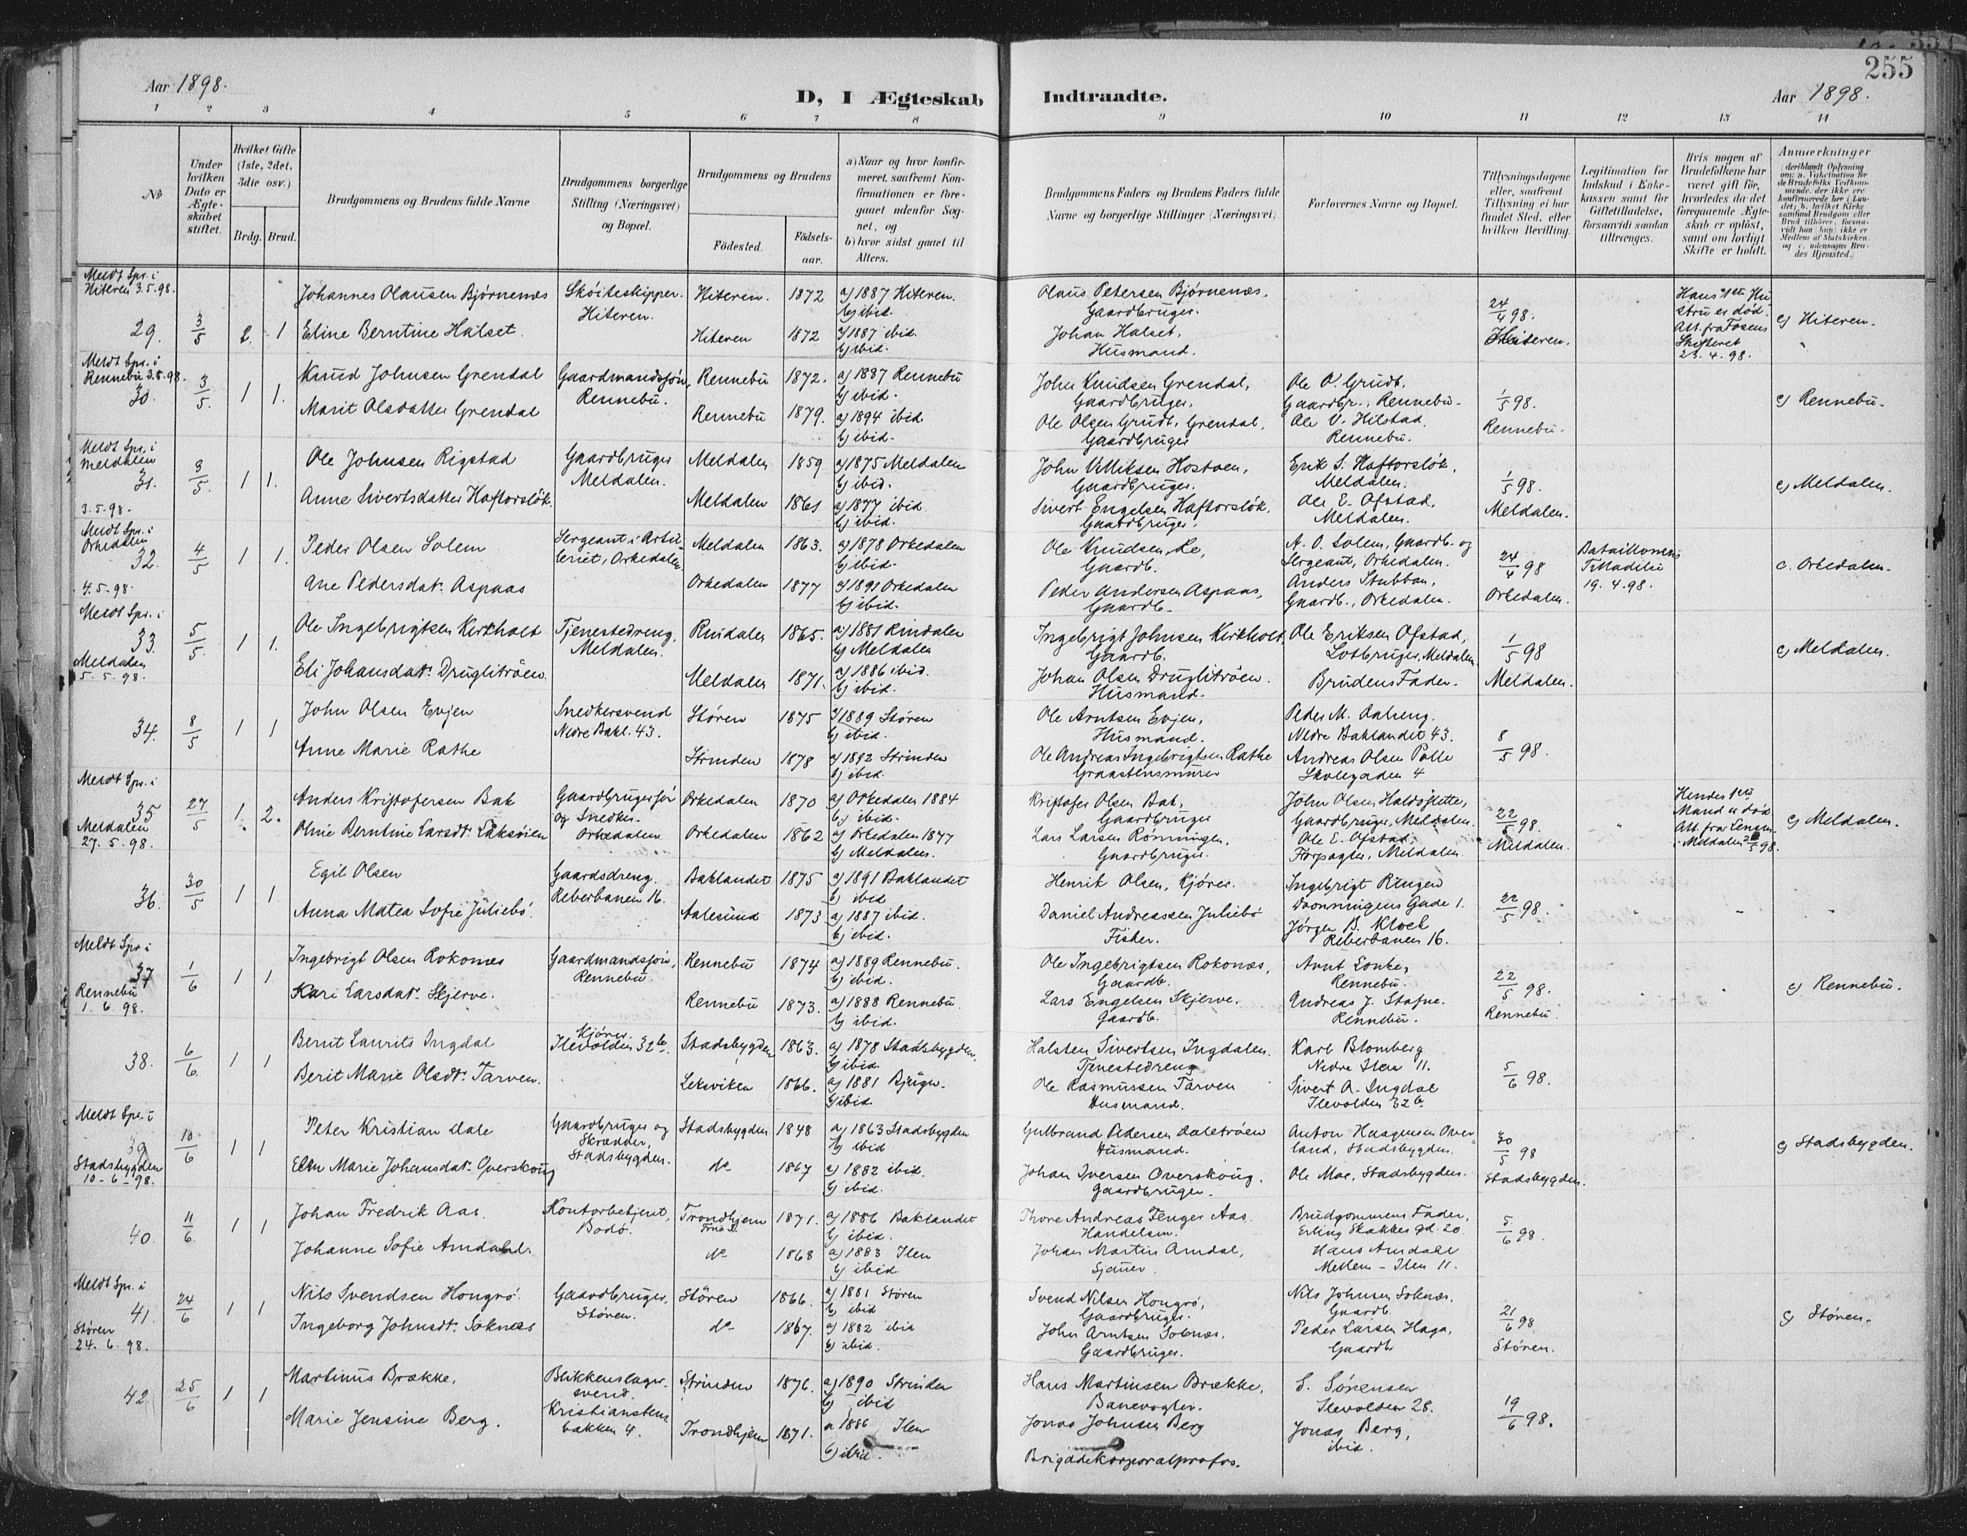 255
Aar 1898.
D, I Ægteskab Indtraadte.
Aar 1898.
1 2 3 4 5 6 7 8 9 10 11 12 13 14
No
Under hvilken Dato er Ægteskabet stiftet.
Hvilket Gifte (1ste, 2det, 3die osv.)
Brdg. Brud.
Brudgommens og Brudens fulde Navne
Brudgommens borgerlige Stilling (Næringsvei) og Bopæl.
Brudgommens og Brudens
Fødested. Fødselsaar.
a) Naar og hvor konfirmeret, saafremt Konfirmationen er foregaaet udenfor Sognet, og
b) hvor sidst gaaet til Alters.
Brudgommens Faders og Brudens Faders fulde Navne og borgerlige Stillinger (Næringsvei)
Forlovernes Navne og Bopæl.
Tillysningsdagene eller, saafremt Tillysning ei har fundet Sted, efter hvilken Bevilling.
Legitimation for Indskud i Enkekassen samt for Giftetilladelse, forsaavidt saadan tiltrænges.
Hvis nogen af Brudefolkene har været gift før, hvorledes da det foregaaende Ægteskab er opløst, samt om lovligt Skifte er holdt.
Anmærkninger
Meldt Spr. i Hiteren 3.5.98.
29. 3/5 2. 1
Johannes Olausen Bjørnenæs Skøiteskipper. Hiteren. Hiteren. 1872 a) 1887 Hiteren. b) ibid. Olaus Petersen Bjørnenæs. Gaardbruger. 24/4 98. Hiteren. Hans 1ste Hustru er død. Att. fra Fosens Skifteret 23.4.98. c) Hiteren.
Eline Berntine Halset. Hiteren 1872 a) 1887 ibid. b) ibid. Johan Halset, Husmand.
Meldt Spr. i Rennebu 3.5.98.
30. 3/5 1 1.
Knud Johnsen Grendal Gaardmandssøn, Rennebu. Rennebu 1872. a) 1887 Rennebu b) ibid. John Knudsen Grendal, Gaardbruger. Ole O. Grudt, Gaardbr., Rennebu. 1/5 98. Rennebu. c) Rennebu.
Marit Olsdatter Grendal Rennebu 1879. a) 1894 ibid b) ibid. Ole Olsen Grudt, Grendal, Gaardbruger Ole V. Hilstad, Rennebu.
Meldt Spr. i Meldalen 3.5.98.
31. 3/5 1 1.
Ole Johnsen Rigstad Gaardbruger Meldalen. Meldalen 1859 a) 1875 Meldalen b) ibid. John Hostoen, Gaardbruger. Erik S. Haftorsløk, Meldalen. 1/5 98. Meldalen. c) Meldalen.
Anne Sivertsdatter Haftorsløk. Meldalen 1861 a) 1877 ibid. b) ibid. Sivert Engelsen Haftorsløk, Gaardbruger. Ole E. Ofstad, Meldalen.
Meldt Spr. i Orkedalen 4.5.98.
32. 4/5 1 1.
Peder Olsen Solem Sergeant i Artilleriet, Orkedalen Meldalen 1863. a) 1878 Orkedalen b) ibid. Ole Knudsen Gaardb. A. O. Solem, Gaardb. og Sergeant, Orkedalen. 24/4 98 Orkedalen. Bataillonens Tilladelse 19.4.98. c. Orkedalen.
Ane Pedersdatr. Aspaas Orkedalen 1877 a) 1891 Orkedalen b) ibid. Peder Andersen Aspaas, Gaardb. Anders Stubban, Gaardb., Orkedalen.
Meldt Spr. i Meldalen 5.5.98.
33. 5/5 1 1.
Ole Ingebrigtsen Kirkholt Tjenestedreng, Meldalen. Rindalen 1865. a) 1881 Rindalen b) Meldalen Ingebrigt Johnsen Kirkholt, Gaardb. Ole Eriksen Ofstad, Meldalen. 1/5 98 Meldalen. c) Meldalen.
Eli Johansdatr. Druglitrøen. Meldalen 1871. a) 1886 ibid. b) ibid. Johan Olsen Druglitrøen. Husmand. Brudens Fader.
34. 8/5 1 1
John Olsen Evjen Snedkersvend Nedre Bakl. 43. Støren 1875 a) 1889 Støren b) ibid. Ole Arntsen Evjen, Husmand. Peder M. Dalseng. Nedre Baklandet 43. 8/5 98.
Anne Marie Rathe Strinden 1878 a) 1892 Strinden b) ibid Ole Andreas Ingebrigtsen Rathe Graastensmurer Andreas Olsen Polle Skolegaden 4
Meldt Spr. i Meldalen 27.5.98.
35 27/5 1. 2.
Anders Kristofersen Bak Gaardbrugersøn og Snedker Orkedalen Orkedalen 1870 a) Orkedalen 1884 b) ibid. Kristofer Olsen Bak, Gaardbruger John Olsen Gaardbruger, Meldalen. 22/5 98. Meldalen. Hendes 1ste Mand er død Att. fra Lensm. i Meldalen 98. c) Meldalen.
Oline Berntine Larsdt. Laksøien Orkedalen 1862 a) Orkedalen 1877 b) Meldalen. Lars Larsen Rønningen, Gaardbruger. Ole E. Ofstad, Forpagter, Meldalen
36. 30/5 1 1.
Egil Olsen Gaardsdreng. Reberbanen 16. Baklandet 1875 a) 1891 Baklandet b) ibid Henrik Olsen, Kjører. Ingebrigt Ringen Dronningens Gade 1. 22/5 98.
Anna Matea Sofie Juliebø. Aalesund 1873 a) 1887 ibid. b) ibid. Daniel Andreassen Juliebø Fisker. Jørgen B. Kloek Reberbanen 16.
Meldt Spr. i Rennebu 1.6.98.
37 1/6 1 1
Ingebrigt Olsen Rokonæs Gaardmandssøn, Rennebu. Rennebu 1874 a) 1889 Rennebu. b) ibid. Ole Ingebrigtsen Rokonæs, Gaardb. Arnt Rennebu. 22/5 98. Rennebu. c) Rennebu.
Kari Larsdatr. Skjerve. Rennebu 1873. a) 1888 Rennebu. b) ibid. Lars Engelsen Skjerve. Gaardb. Andreas J. Stafne. Rennebu.
38. 6/6 1 1
Bernt Laurits Ingdal Kjører Ilevolden 32b. Stadsbygden 1863. a) 1878 Stadsbygden. b) ibid. Halsten Sivertsen Ingdalen. Tjenestedreng Karl Blomberg Nedre Ilen 11. 5/6 98.
Berit Marie Olsdt. Tarven. Leksviken 1866. a) 1881 Bjugn. b) ibid. Ole Rasmussen Tarven Husmand. Sivert A. Ingdal Ilevolden 32b.
Meldt Spr. i Stadsbygden 10-6-98.
39 10/6 1 1
Peter Kristian Dale Gaardbruger og Skrædder, Stadsbygden. Stadsbygden 1848 a) 1863 Stadsbygden b) ibid Gulbrand Pedersen Daletrøen Husmand. Anton Haagensen Overland, Stadsbygden. 30/5 98 Stadsbygden. c) Stadsbygden.
Marie Johansdatr. Overskoug do 1867 a) 1882 ibid. b) ibid. Johan Iversen Overskoug. Gaardbruger. Ole Moe, Stadsbygden.
40. 11/6 1 1
Johan Fredrik Aas. Kontorbetjent, Bodø. Trondhjem 1871. a) 1886 Baklandet b) ibid. Thore Andreas Fenger Aas. Handelsm. Brudgommens Fader, Erling Skakkes gd. 20. 5/6 98.
Johanne Sofie Amdahl. do 1868 a) 1883 Ilen b) ibid Johan Martin Amdal, Sjauer. Hans Amdahl Mellem-Ilen 11.
Meldt Spr. i Støren 24.6.98.
41. 24/6 1 1
Nils Svendsen Hongrø. Gaardbruger, Støren. Støren 1866. a) 1881 Støren b) ibid Svend Nilsen Hongrø, Gaardbruger. Nils Johnsen Soknæs. Gaardb. 21/6 98 Støren. c) Støren.
Ingeborg Johnsdt. Soknæs do 1867. a) 1882 ibid b) ibid. John Arntsen Soknæs. Gaardbruger. Peder Larsen Haga, Gaardb
42 25/6 1 1
Martinus Brække. Blikkenslagersvend. Kristianstensbakken 4. Strinden 1876. a) 1890 Strinden b) ibid Hans Martinsen Brække. Banevogter. S. Sørensen Ilevolden 28. 19/6 98.
Marie Jensine Berg. Trondhjem 1871. a 1886 Ilen b) ibid. Jonas Johnsen Berg Brigadekorporalprofos. Jonas Berg, ibid.